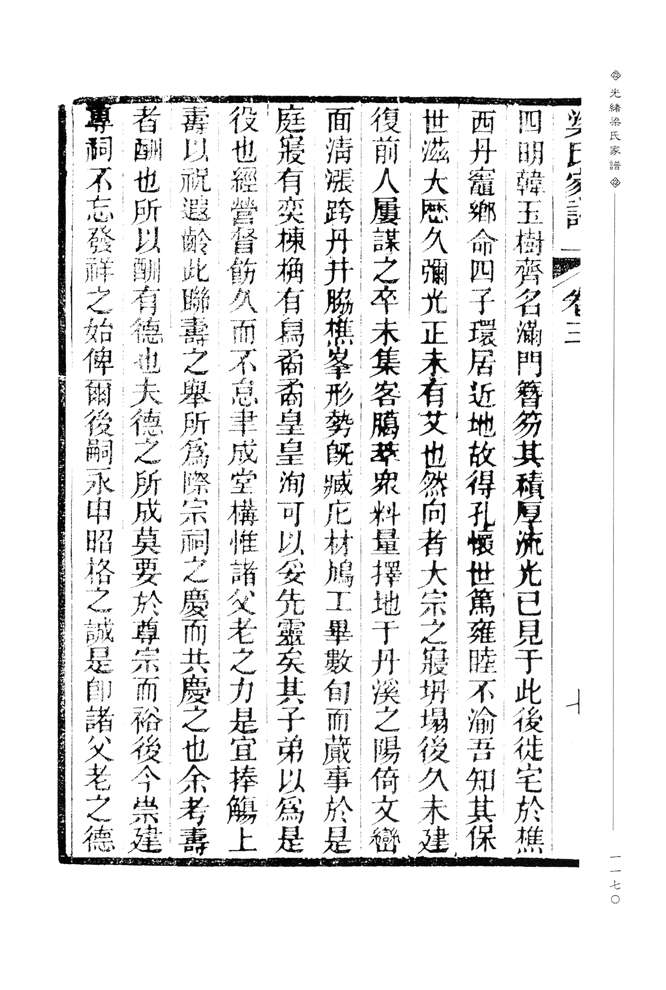 光緒梁氏家譜
一一七〇
梁氏家譜 卷三 七
四明韓玉樹齊名滿門簪笏其積厚流光已見于此後徙宅於樵
西丹竈鄉命四子環居近地故得孔懷世篤雍睦不渝吾知其保
世滋大歷久彌光正未有艾也然向者大宗之寢坍塌後久未建
復前人屢謀之卒未集客臈萃衆料量擇地于丹溪之陽倚文巒
面清漲跨丹井脇樵峯形勢旣臧庀材鳩工畢數旬而蕆事於是
庭寢有奕棟桷有舄矞矞皇皇洵可以妥先靈矣其子弟以爲是
役也經營督飭久而不怠聿成堂構惟諸父老之力是宜捧觴上
壽以祝遐齡此聯壽之舉所爲際宗祠之慶而共慶之也余考壽
者酬也所以酬有德也夫德之所成莫要於尊宗而裕後今崇建
專祠不忘發祥之始俾爾後嗣永申昭格之誠是卽諸父老之德